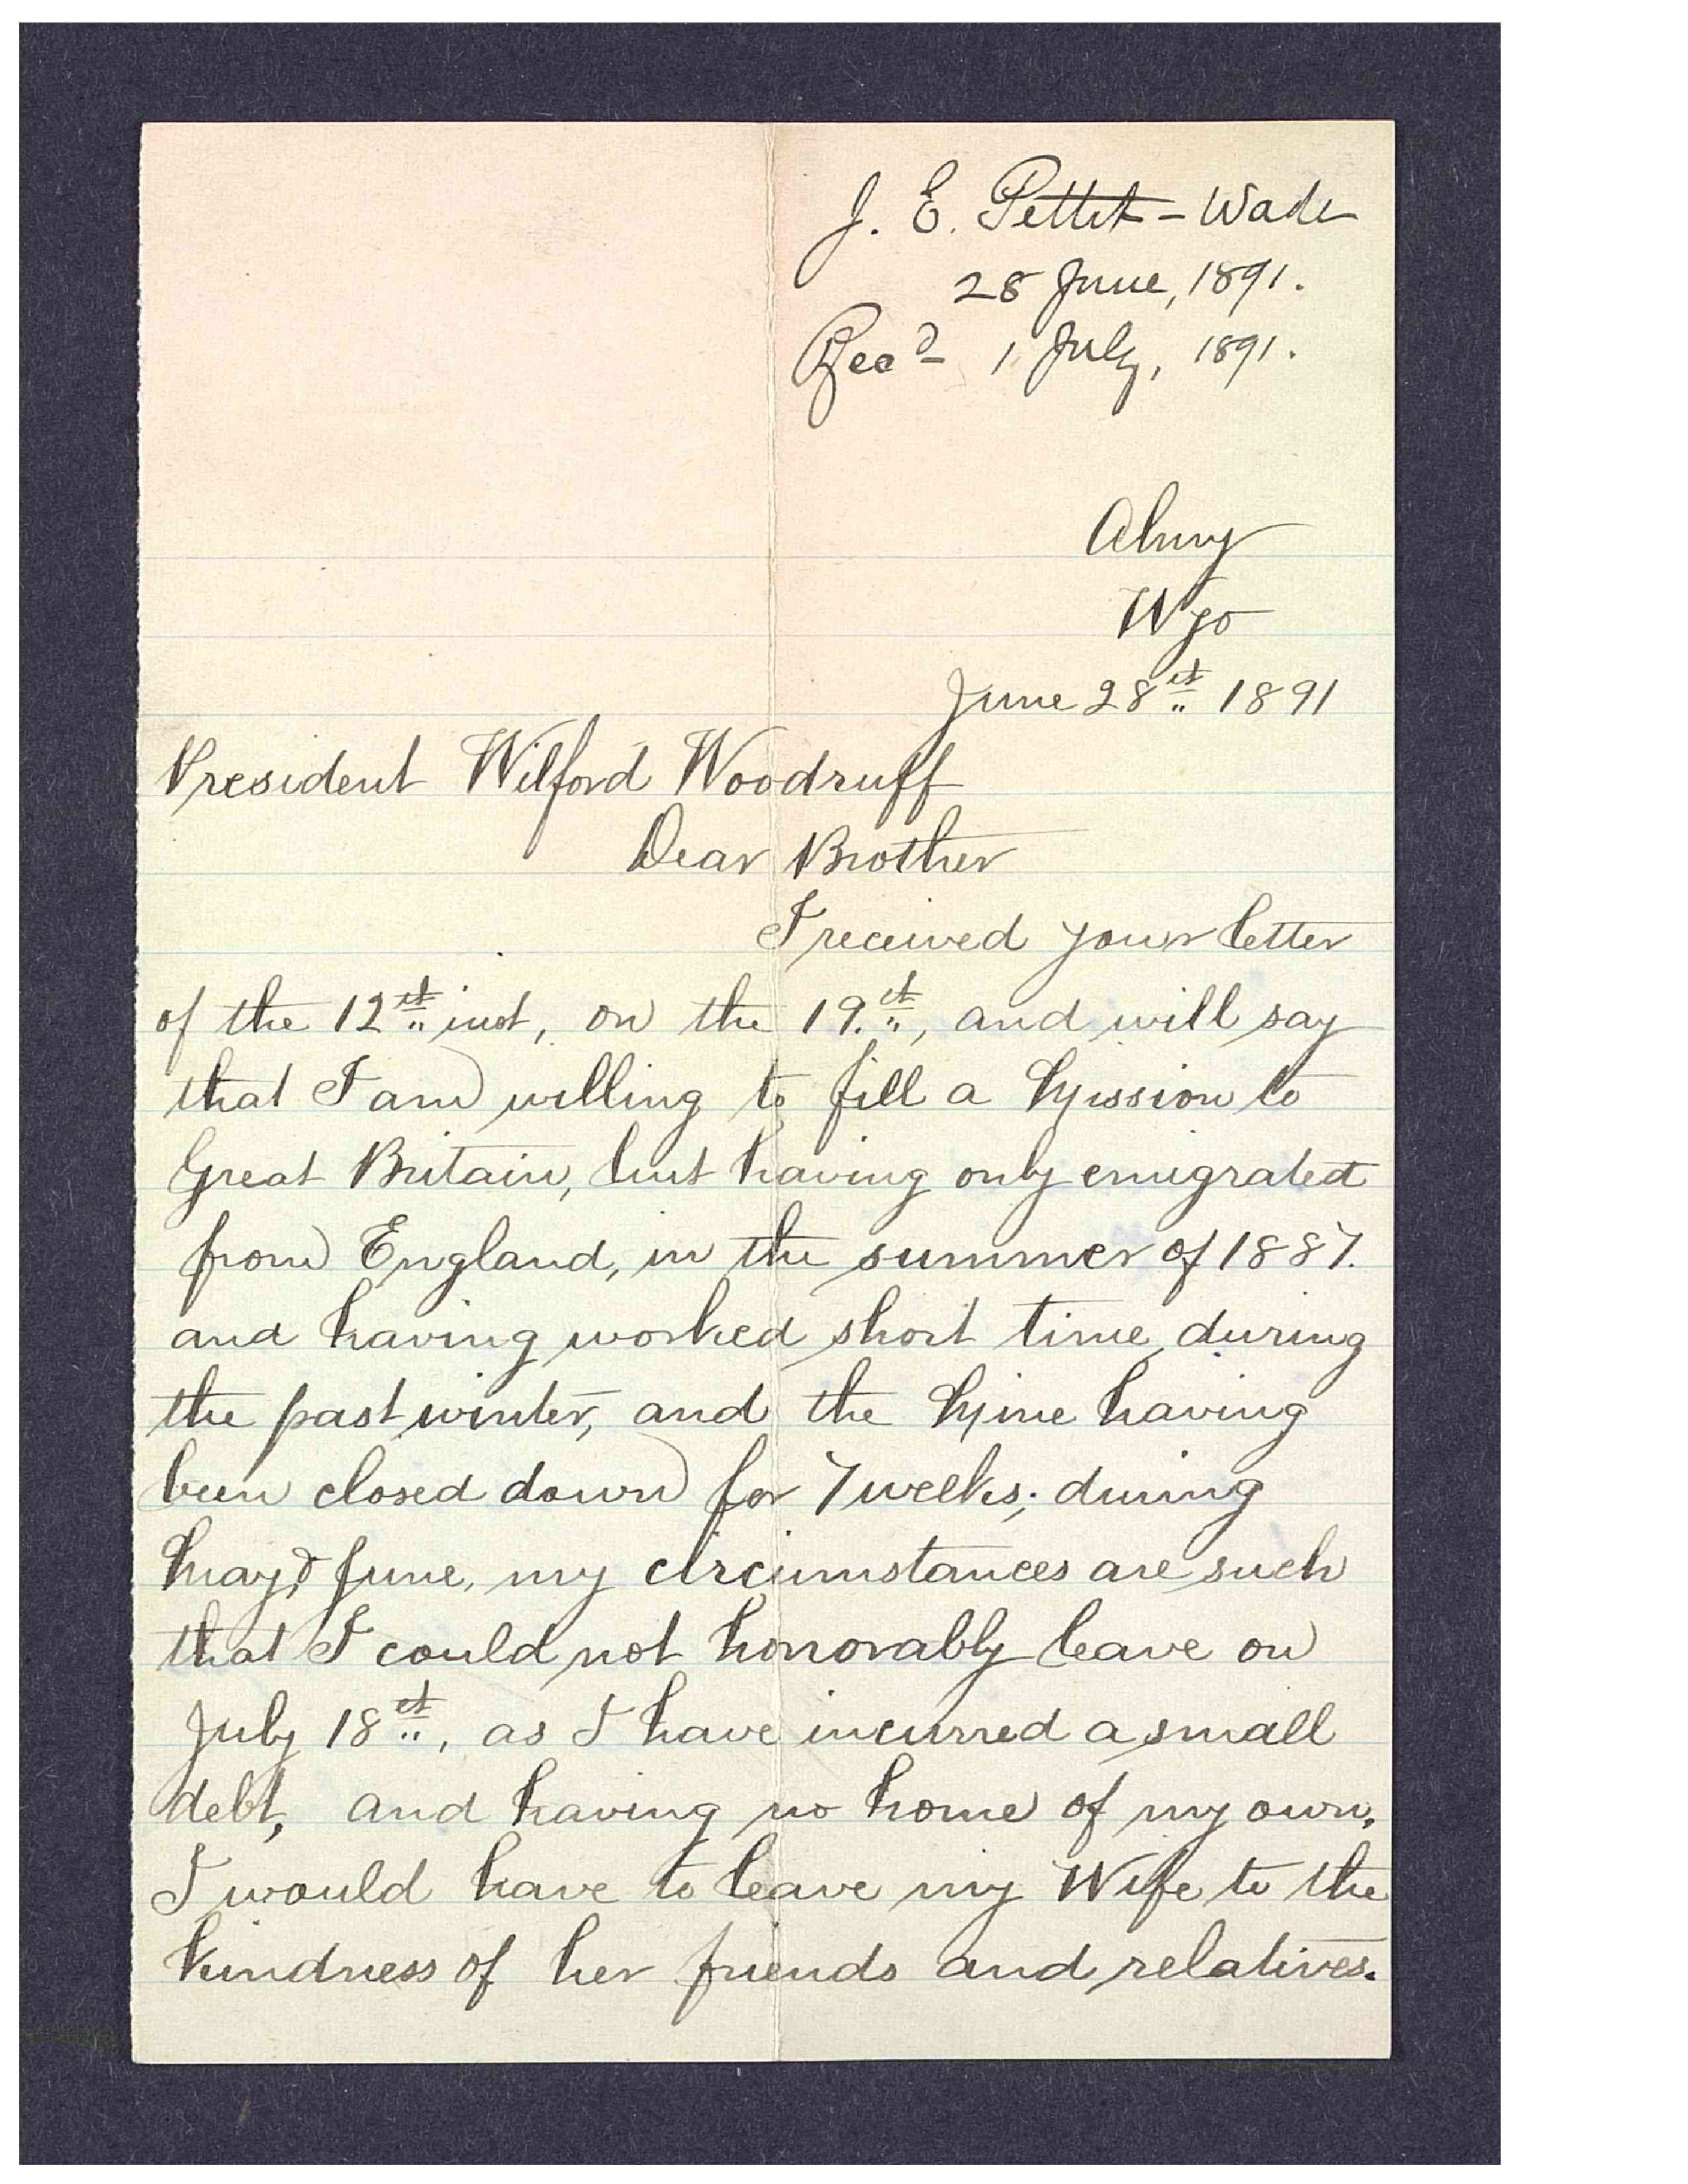 J. E. Pettit - Wade
28 June, 1891.
Recd 1 July, 1891.
Almy
Wyo
June 28th 1891
President Wilford Woodruff
Dear Brother
I received your letter
of the 12th inst, on the 19.th, and will say
that I am willing to fill a Mission to
Great Britain, but having only emigrated
from England, in the summer of 1887.
and having worked short time, during
the past winter, and the Mine having
been closed down for 7 weeks; during
May, & June, my circumstances are such
that I could not honorably leave on
July 18th, as I have incurred a small
debt, and having no home of my own,
I would have to leave my Wife to the
kindness of her friends and relatives.